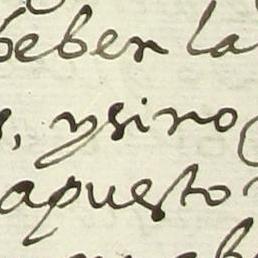 beber la
s, ysino
apuesto